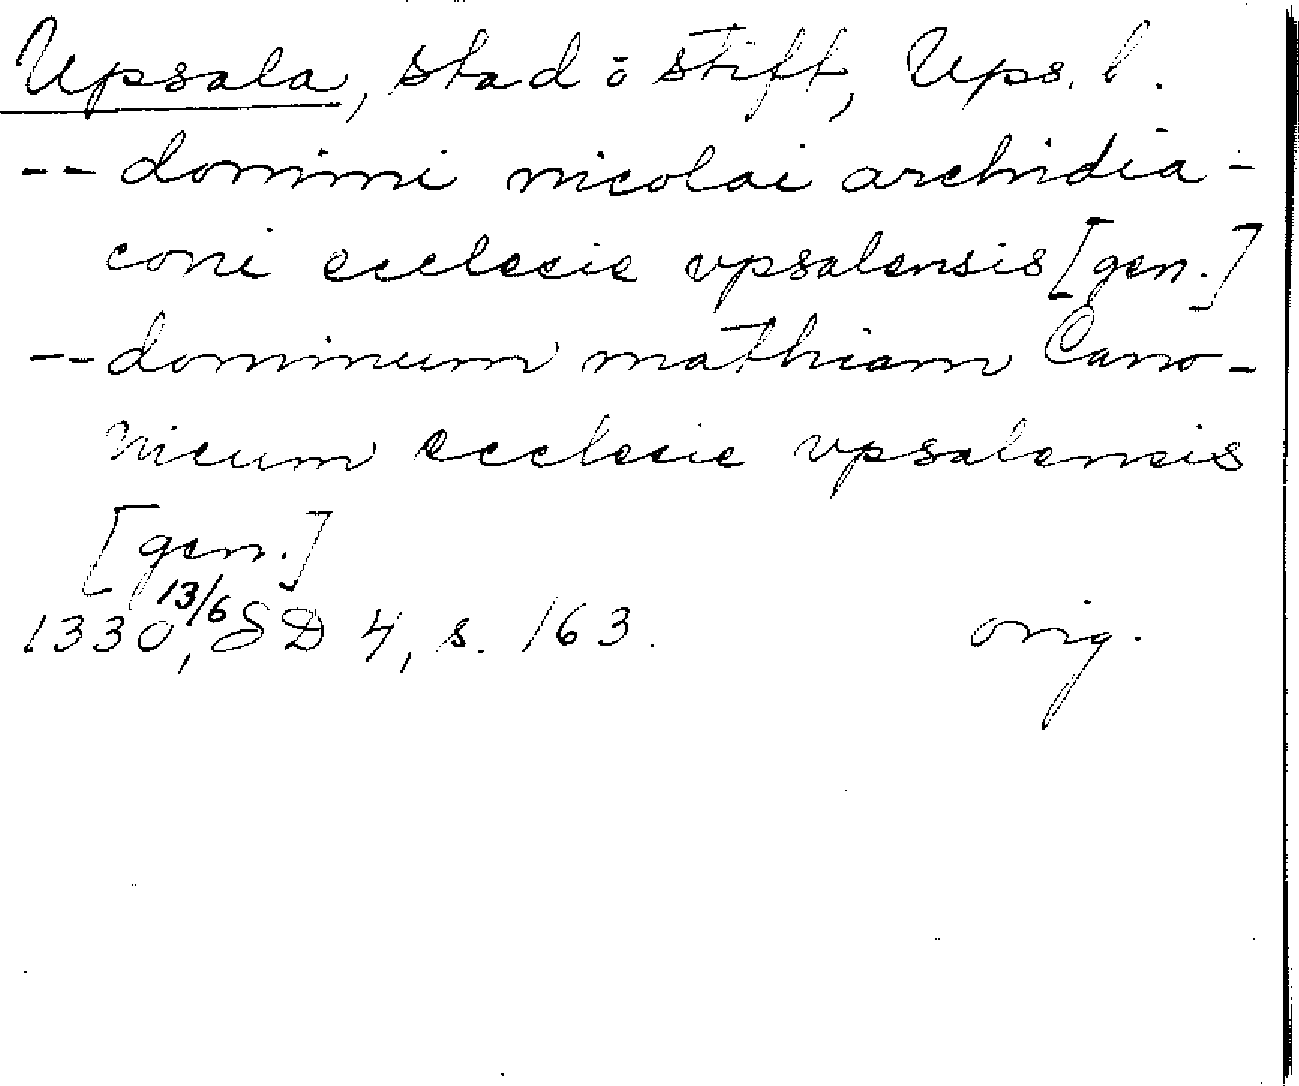 Upsala, stad o stift, Ups. l.
-- domini nicolai archidia-
coni ecclesie vpsalensis [gen.]
-- dominum mathiam Cano-
nicum ecclesie vpsalensis
[gen.]
1330 13/6, SD 4, s. 163. orig.